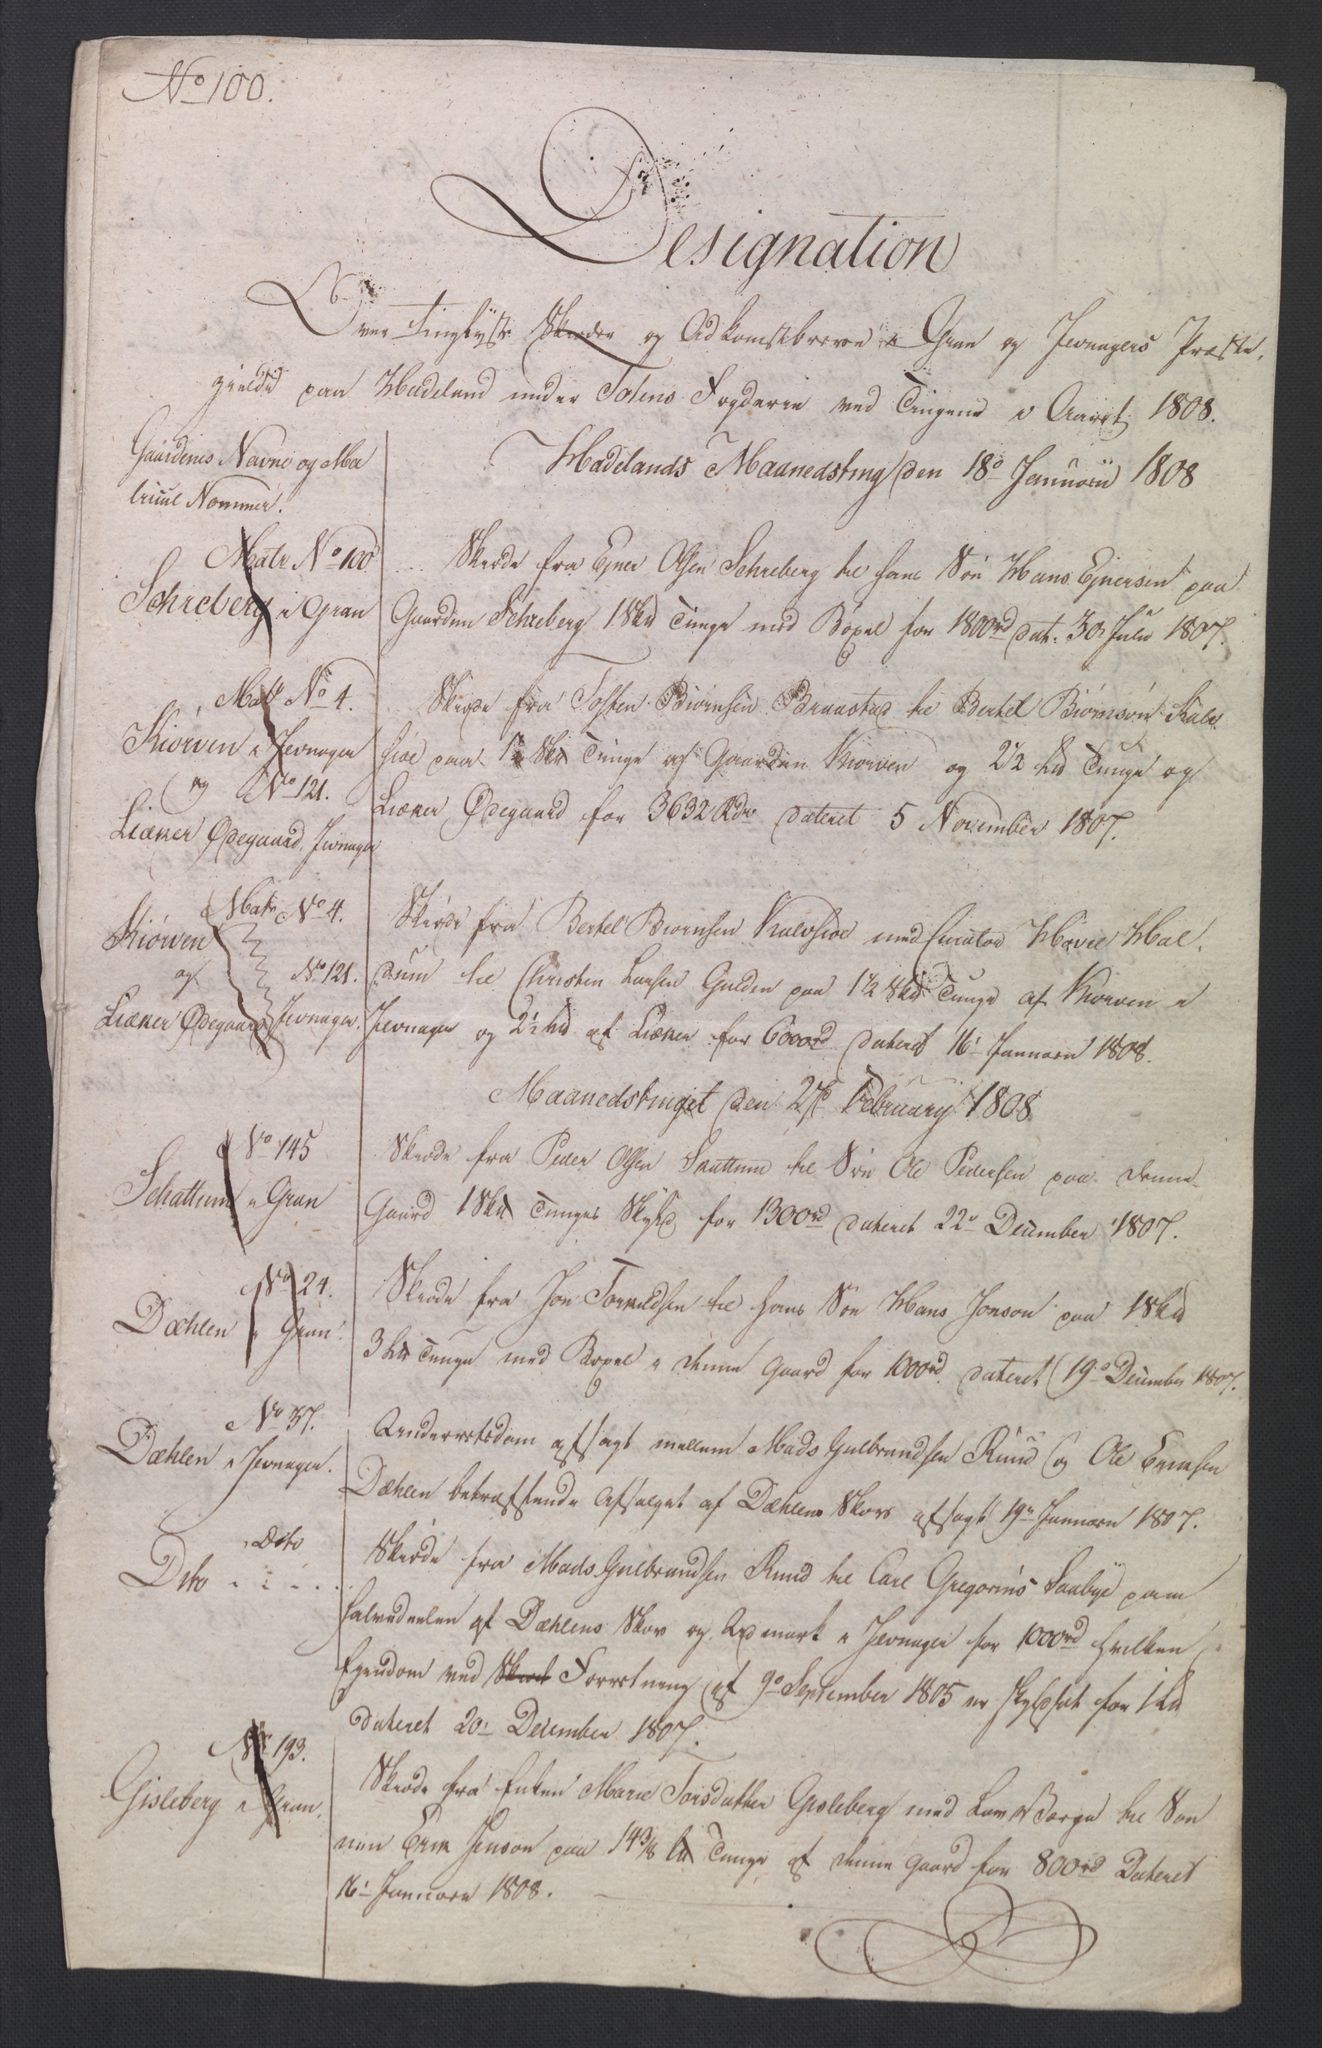 No 100.
Designation
Over Tinglyste Skiøder og Adkomstbreve i Gran og Jevnagers Præste,
gjelde paa Hadeland under Totens Fogderie ved Tingene i Aaret 1808.
Gaardenes Navne og Ma
tricul Nommer.
Hadelands Maanedsting den 18de Januarii 1808
Matr No 100
Schreberg i Gran
Skiøde fra Ejner Olsen Schreberg til hans Søn Hans Ejnersen paa
Gaarden Schreberg 1 Skd Tunge med Bøxel for 1800rd dat. 30 Julii 1807.
Matr No 4.
Kiørven i Jevnager
og No 121.
Liæner Ødegaard, Jevnager
Skiøde fra Tosten Biørnsen Braastad til Bertel Biørnsøn Kalv
sioe paa Skd Tunge af Gaarden Kiørven og 2 1/2 hd Tunge og
Liæner Ødegaard for 3632 Rdr dateret 5 November 1807.
Matr No 4.
Kiørven
og No 121.
Liæner Ødegaard Jevnager.
Skiøde fra Bertel Biørnsen Kalvsioe med Curator Høvel Hal,
dum til Christen Larsen Gulden paa 1 1/2 Skd Tunge af Kiørven i
Jevnager og 2 1/2 hd af Liæner for 6000rd dateret 16 Januarii 1808.
Maanedstinget den 27 February 1808
No 145
Schattum i Gran
Skiøde fra Peder Olsen Skattum til Søn Ole Pedersen paa denne
Gaard 1 Skd Tunges Skyld for 1300rd dateret 22de December 1807.
No 24.
Dæhlen i Gran.
Skiøde fra Jon Torvildsen til hans Søn Hans Jonson paa 1 Skd
3 hd Tunge med Bøxel i denne Gaard for 1000rd. dateret 19de December 1807.
No 37.
Dæhlen i Jevnager.
Underretsdom afsagt mellem Mads Gulbrandsen Ruud og Ole Ericksen
Dæhlen betræffende Afsalget af Dæhlens Skov afsagt 19de Januarii 1807.
Dito
Dito
Skiøde fra Mads Gulbrandsen Ruud til Carl Gregorius Saabye paa
halvedeelen af Dæhlens Skov og Udmark i Jevnager for 1000rd hvilken
Ejendom ved Skiøde Forretning af 9de September 1805 er skyldsat for 1 hd
dateret 20 December 1807.
No 193.
Gisleberg i Gran.
Skiøde fra Enken Marie Torsdatter Gisleberg med Lauværge til Søn
nen Erik Jenson paa 14 3/8 hd Tunge af denne Gaard for 800rd Dateret
16 Januarii 1808.